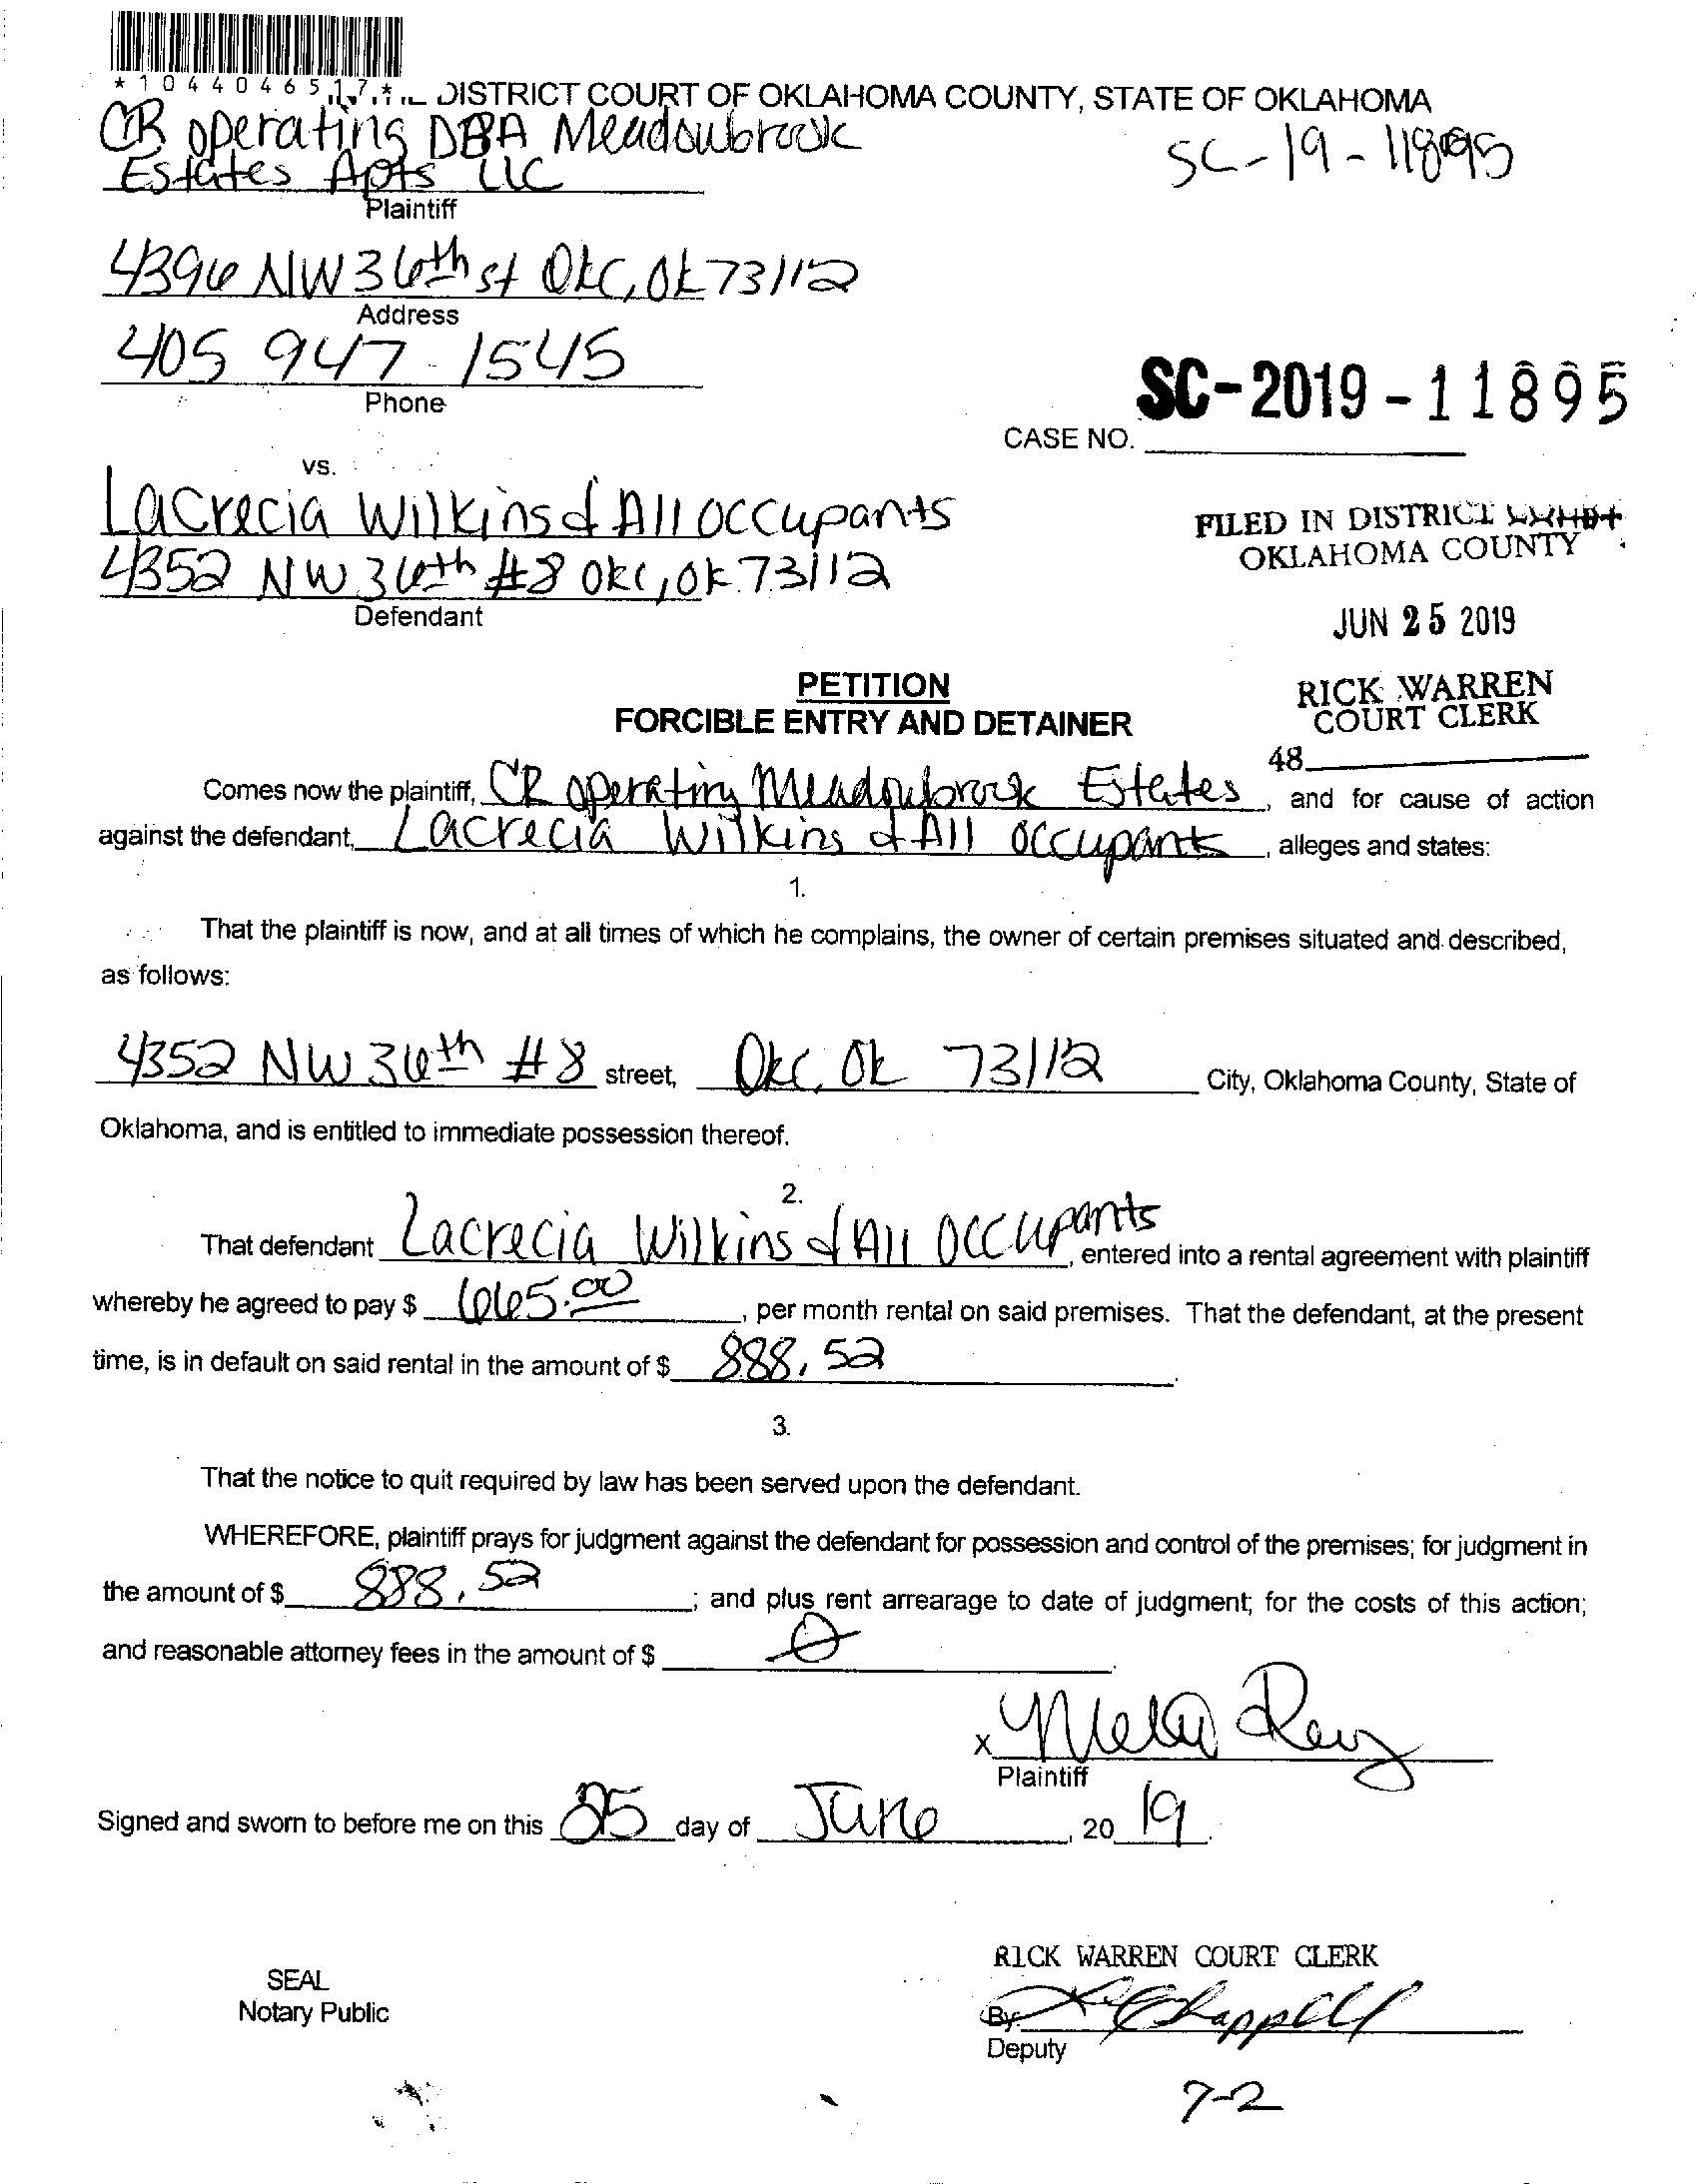 *1044046517*
DISTRICT COURT OF OKLAHOMA COUNTY, STATE OF OKLAHOMA
CR operating DBA Meadowbrook
Estates Apts LLC
SC-19-11895
Plaintiff
4396 NW 36th st OKC, OK 73112
Address
405 947-1545
Phone
SC-2019-11895
CASE NO.
vs.
Lacrecia Wilkins & All occupants
4352 NW 36th #8 OKC, OK 73112
Defendant
FILED IN DISTRICT
OKLAHOMA COUNTY
JUN 25 2019
RICK WARREN
COURT CLERK
48
PETITION
FORCIBLE ENTRY AND DETAINER
Comes now the plaintiff, CR operating Meadowbrook Estates, and for cause of action
against the defendant, Lacrecia Wilkins & All occupants, alleges and states:
1.
That the plaintiff is now, and at all times of which he complains, the owner of certain premises situated and described,
as follows:
4352 NW 36th #8 street, OKC, OK 73112 City, Oklahoma County, State of
Oklahoma, and is entitled to immediate possession thereof.
2.
That defendant Lacrecia Wilkins & All Occupants, entered into a rental agreement with plaintiff
whereby he agreed to pay $ 665.00, per month rental on said premises. That the defendant, at the present
time, is in default on said rental in the amount of $ 888.52.
3.
That the notice to quit required by law has been served upon the defendant.
WHEREFORE, plaintiff prays for judgment against the defendant for possession and control of the premises; for judgment in
the amount of $ 888.52; and plus rent arrearage to date of judgment; for the costs of this action;
and reasonable attorney fees in the amount of $ 0.
X
Plaintiff
Signed and sworn to before me on this 25 day of June, 2019.
SEAL
Notary Public
RICK WARREN COURT CLERK
By: Chappell
Deputy
7-2